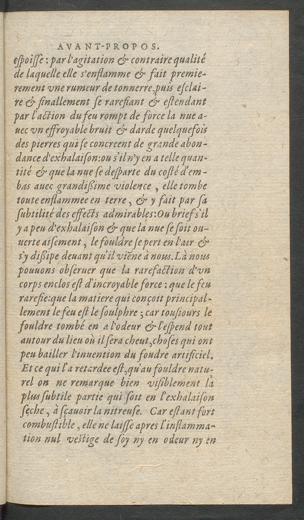 AVANT-PROPOS.
espoisse : par l'agitation & contraire qualité
de laquelle elle s'enflamme & fait premie-
rement vne rumeur de tonnerre, puis esclai-
re & finallement se rarefiant & estendant
par l'action du feu rompt de force la nue a-
uec vn effroyable bruit & darde quelquefois
des pierres qui se concreent de grande abon-
dance d'exhalaison: ou s'il n'y en a telle quan-
tité & que la nue se desparte du costé d'em-
bas auec grandissime violence, elle tombe
toute enflammee en terre, & y fait par sa
subtilité des effects admirables: Ou brief s'il
y a peu d'exhalaison & que la nue se soit ou-
uerte aisement, le fouldre se pert en l'aer &
s'y dissipe deuant qu'il viēne à nous. Là nous
pouuons obseruer que la rarefaction d'vn
corps enclos est d'incroyable force: que le feu
rarefie: que la matiere qui conçoit principal-
lement le feu est le soulphre; car tousiours le
fouldre tombé en a l'odeur & l'espend tout
autour du lieu où il sera cheut, choses qui ont
peu bailler l'inuention du foudre artificiel.
Et ce qui l'a retardee est, qu'au fouldre natu-
rel on ne remarque bien visiblement la
plus subtile partie qui soit en l'exhalaison
seche, à sçauoir la nitreuse. Car estant fort
combustible, elle ne laisse apres l'inflamma-
tion nul vestige de soy ny en odeur ny en